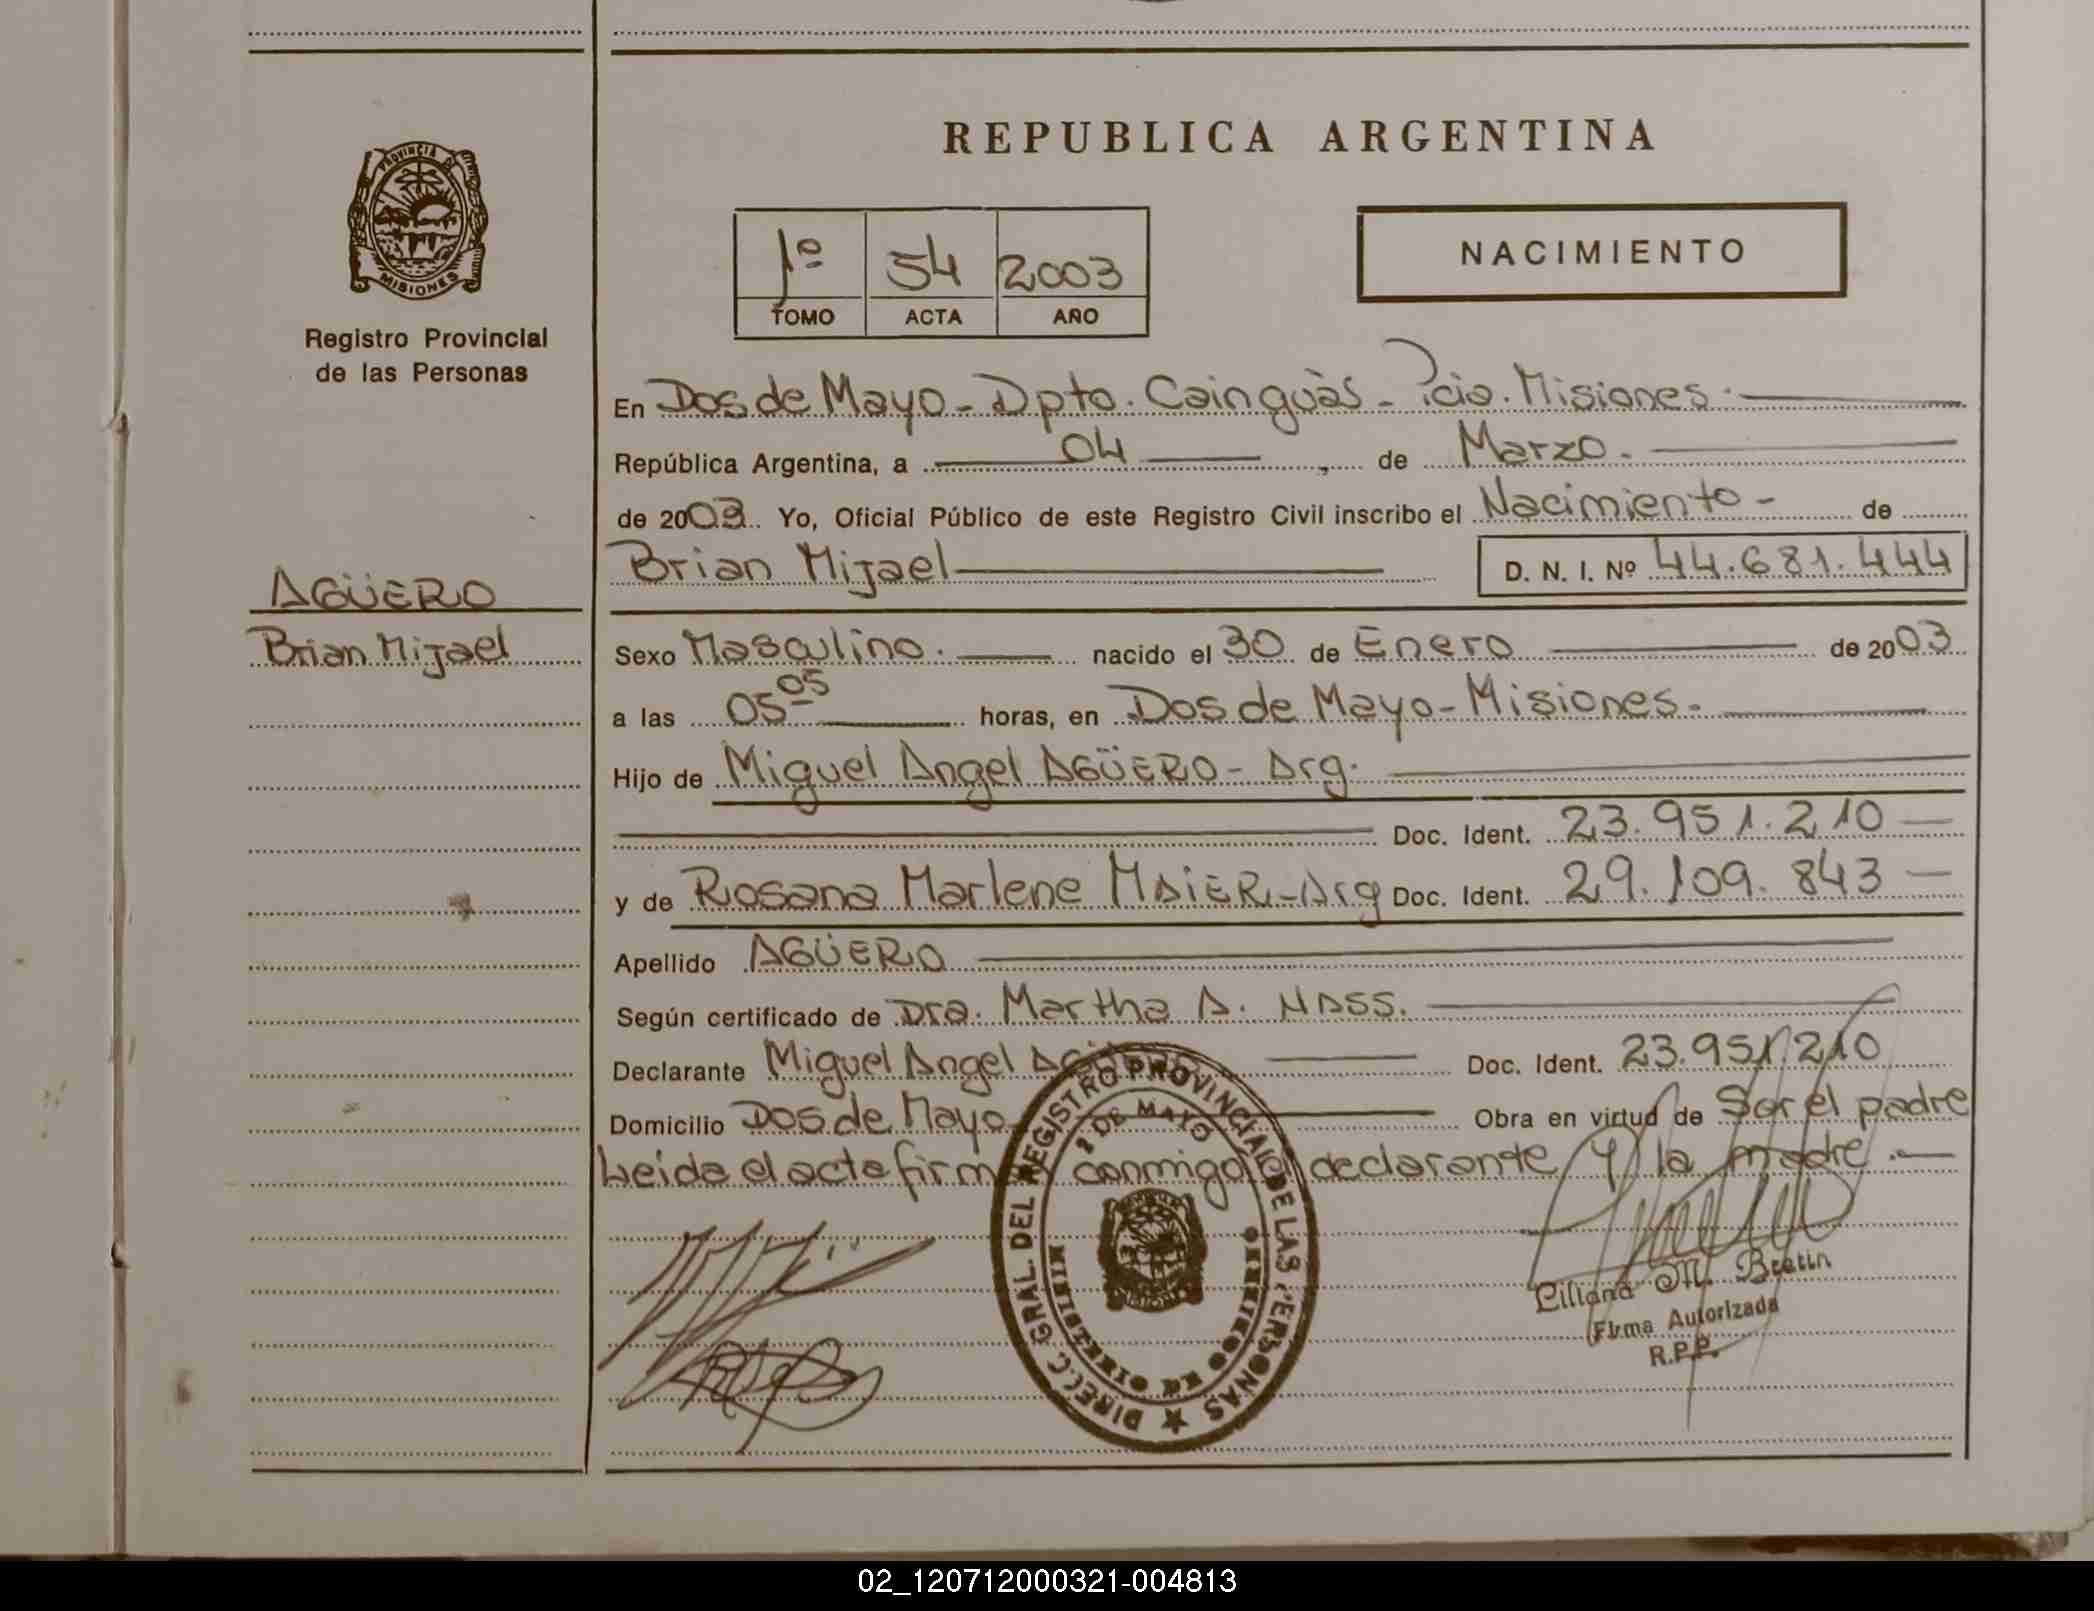 PROVINCIA D
MISIONES
Registro Provincial
de las Personas
AGÜERO
Brian Mijael
REPUBLICA ARGENTINA
1º 54 2003
TOMO ACTA AÑO
NACIMIENTO
En Dos de Mayo - Dpto. Cainguàs - Pcia. Misiones.
República Argentina, a 04 de Marzo.
de 2003. Yo, Oficial Público de este Registro Civil inscribo el Nacimiento - de
Brian Mijael D. N. I. Nº 44.681.444
Sexo Masculino. nacido el 30 de Enero de 2003
a las 05 05 horas, en Dos de Mayo - Misiones.
Hijo de Miguel Angel AGÜERO - Arg.
Doc. Ident. 23.951.210
y de Rosana Marlene MAIER - Arg Doc. Ident. 29.109.843
Apellido AGÜERO
Según certificado de Dra. Martha A. NASS.
Declarante Miguel Angel AGÜERO Doc. Ident. 23.951.210
Domicilio Dos de Mayo Obra en virtud de Ser el padre
Leida el acta firman conmigo el declarante y la madre.
DIRECC. GRAL. DEL REGISTRO PROVINCIAL DE LAS PERSONAS
2 DE MAYO
MINISTERIO DE GOBIERNO
Liliana M. Bretin
Firma Autorizada
R.P.P.
02_120712000321-004813